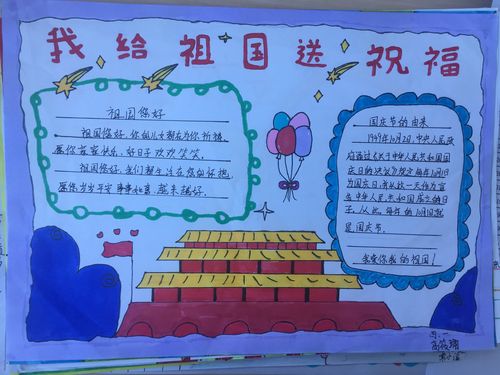 我给祖国送祝福
祖国您好
祖国您好，你的儿女都在为你祈祷，
愿你喜喜快乐，好日子欢欢笑笑。
祖国您好，我们都生活在您的怀抱，
愿您岁岁平安事事如意，越来越好。
国庆节的由来
1949年10月2日，中央人民政
府通过《关于中华人民共和国国
庆日的决议》规定每年10月1日
为国庆日，并以这一天作为宣
告中华人民共和国成立的日
子。从此，每年的10月1日就
是国庆节。
我爱你我的祖国！
四、一